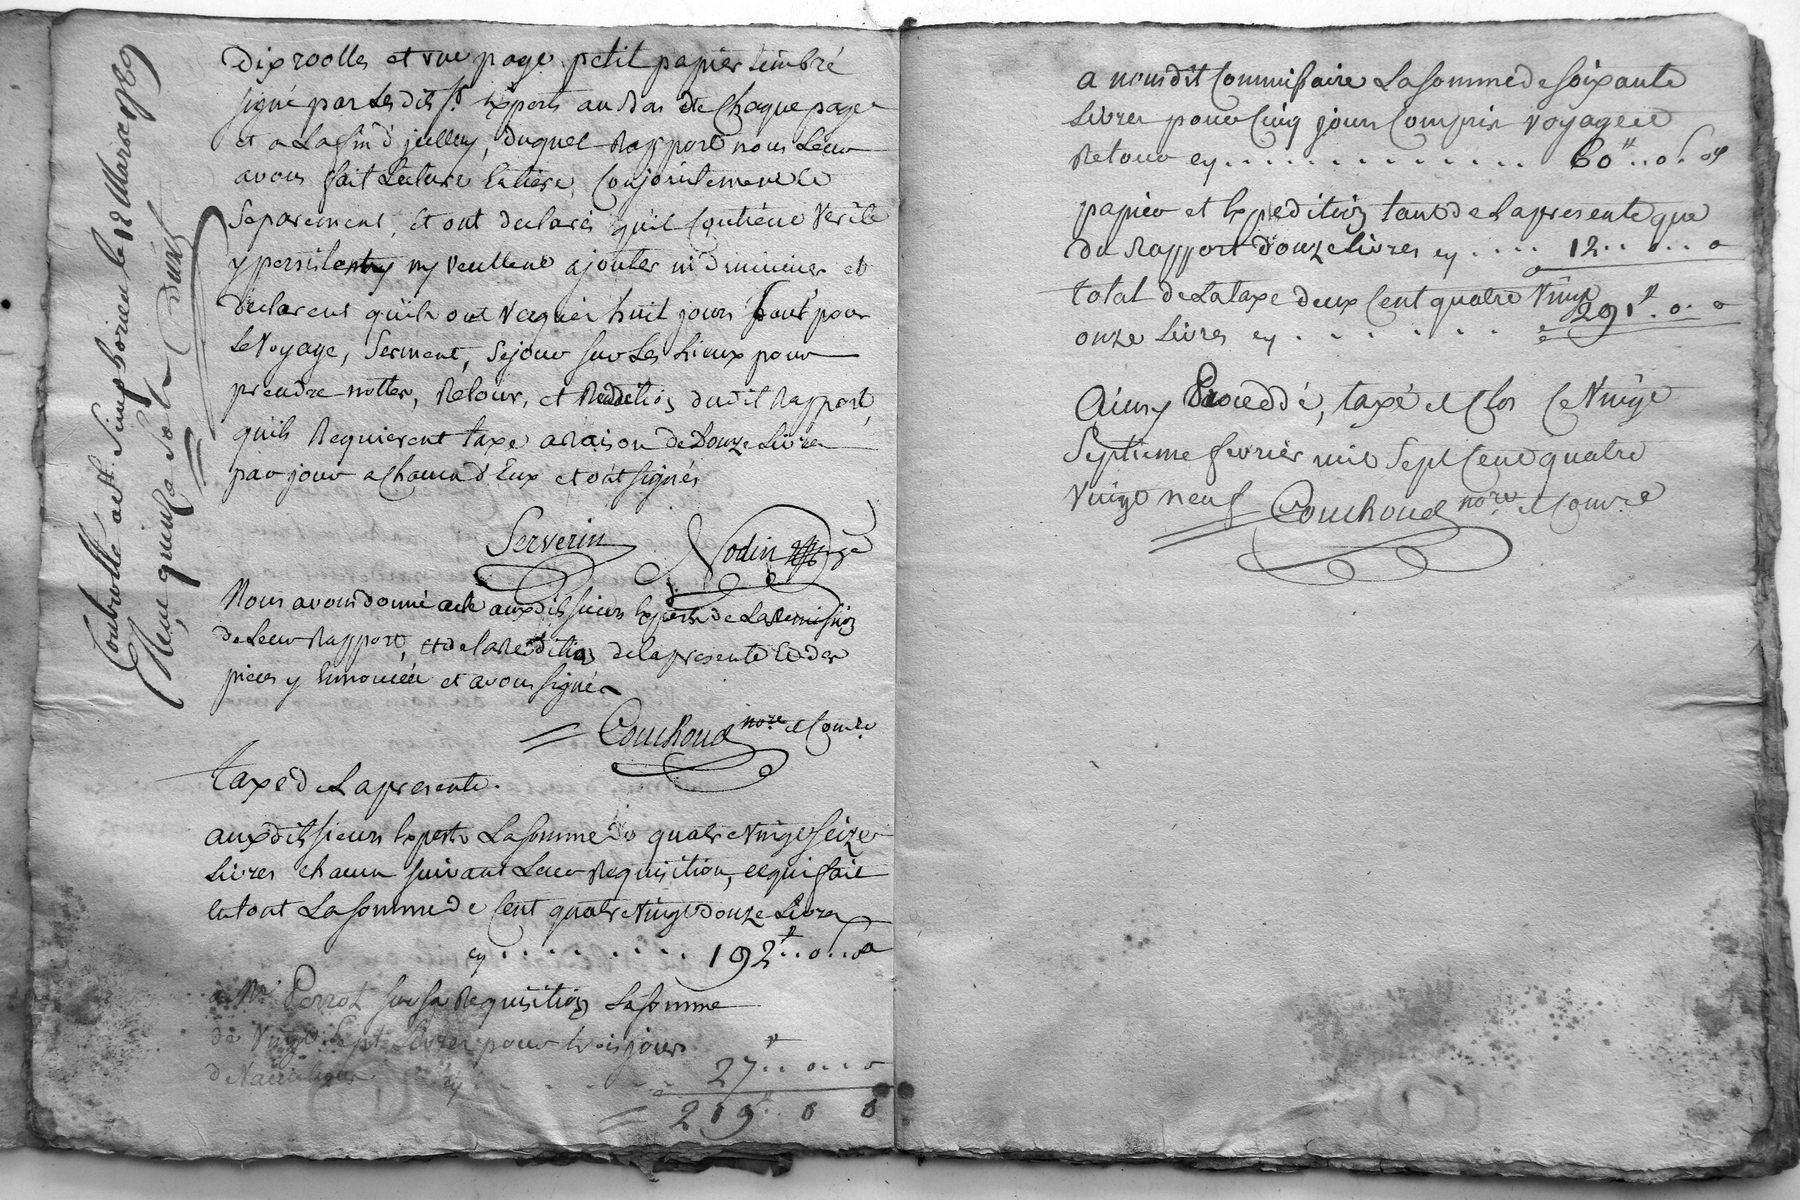 Controllé a St. Simphorien le 12 Mars 1789
Reçu quinze sols
dix roolles et une page petit papier timbré
signé par lesdits Srs Experts au bas de chaque page
et a la fin d'jcelluy, duquel Rapport nous Leur
avons fait Lecture Entiere, Conjointement et
Separement, Et ont declaré qu'il Contient Verité
y persistent ny veullent ajouter ni diminuer et
declarent quils ont Vacqué huit jours tant pour
le voyage, Serment, Sejour sur Les Lieux pour
prendre nottes, Retour, et Reddition dudit Rapport,
quils Requierent taxe a Raison de Douze Livres
par jour a chacun d'Eux et ont signés
Serverin Nodin
Nous avons donné acte auxdits sieurs Experts de La Remission
de Leur Rapport, et de la Reddition de la presente Et des
pieces y Enoncées et avons signé
Couchoud nore et Comre
taxe de La presente.
auxdits sieurs Experts La somme de quatre vingt seize
Livres chacun suivant Leur Requisition, ce qui fait
En tout La somme de Cent quatre vingt douze Livres
cy . . . . . . . . 192tt..o s..o d
a Me Perrot sur sa Requisition La somme
de Vingt Sept Livres pour trois jours
de Vaccations cy . . . . . 27tt..o..o
219tt.. o o
a nousdit Commissaire La somme de soixante
Livres pour Cinq jours Compris voyage et
Retour cy . . . . . . . . . . . . . 60tt..o s.. o d
papier et Expedition tant de La presente que
du Rapport Douze Livres cy . . . . 12.. o.. o
total de La taxe deux Cent quatre Vingt
onze Livres cy . . . . . . . 291tt.o.. o
Ainsy Proceddé, taxé et Clos Ce Vingt
Septieme fevrier mil Sept Cent quatre
Vingt neuf Couchoud nore et Comre